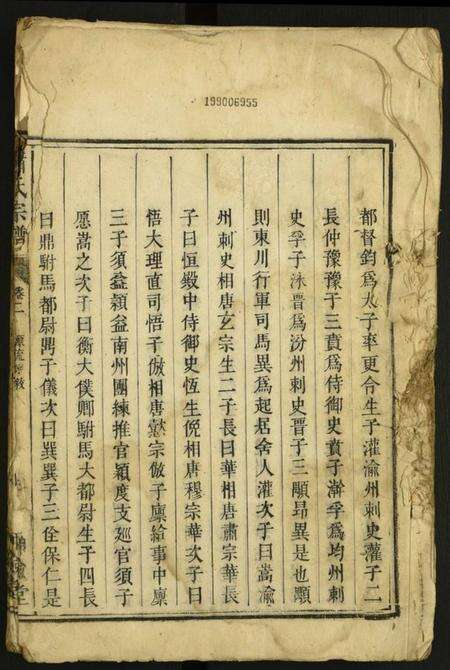 199006955
都督鈞爲太子率更令生子灌渝州刺史灌子二
長仲豫豫子三賁爲侍御史賁子澣孚爲均州刺
史孚子洙晋爲汾州刺史晋子三顒昂異是也顒
則東川行軍司馬異爲起居舍人灌次子曰嵩渝
州刺史相唐玄宗生二子長曰華相唐肅宗華長
子曰恒緞中侍御史恆生俛相唐穆宗華次子曰
悟大理直司悟子倣相唐懿宗倣子廪給事中廪
三子須益顈益南州團練推官潁度支廵官須子
愿嵩之次子曰衡大僕卿駙馬大都尉生子四長
曰鼎駙馬都尉鼎子儀次曰巽巽子三佺保仁是
氏宗譜
卷二
源流
堂